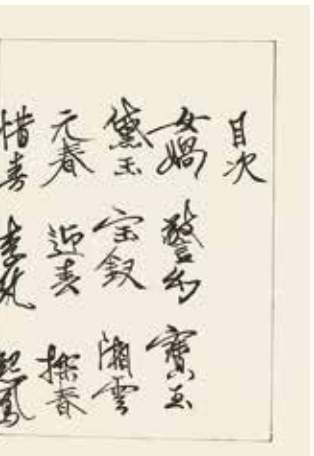 目次
女媧 警幻 寶玉
黛玉 宝釵 湘雲
元春 迎春 探春
惜春 李紈 熙鳳